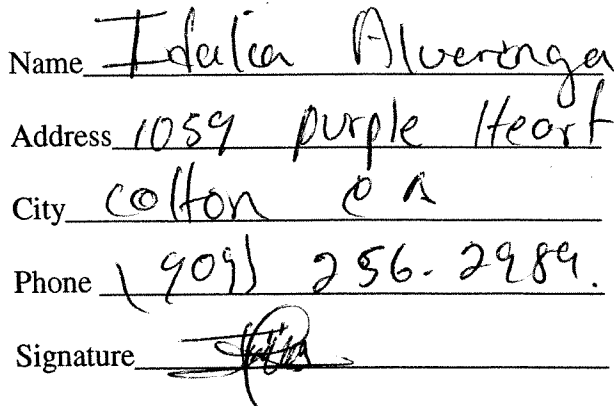 Name Idalia Alverenga
Address 1059 purple Heart
City colton CA
Phone (909) 256-2989.
Signature